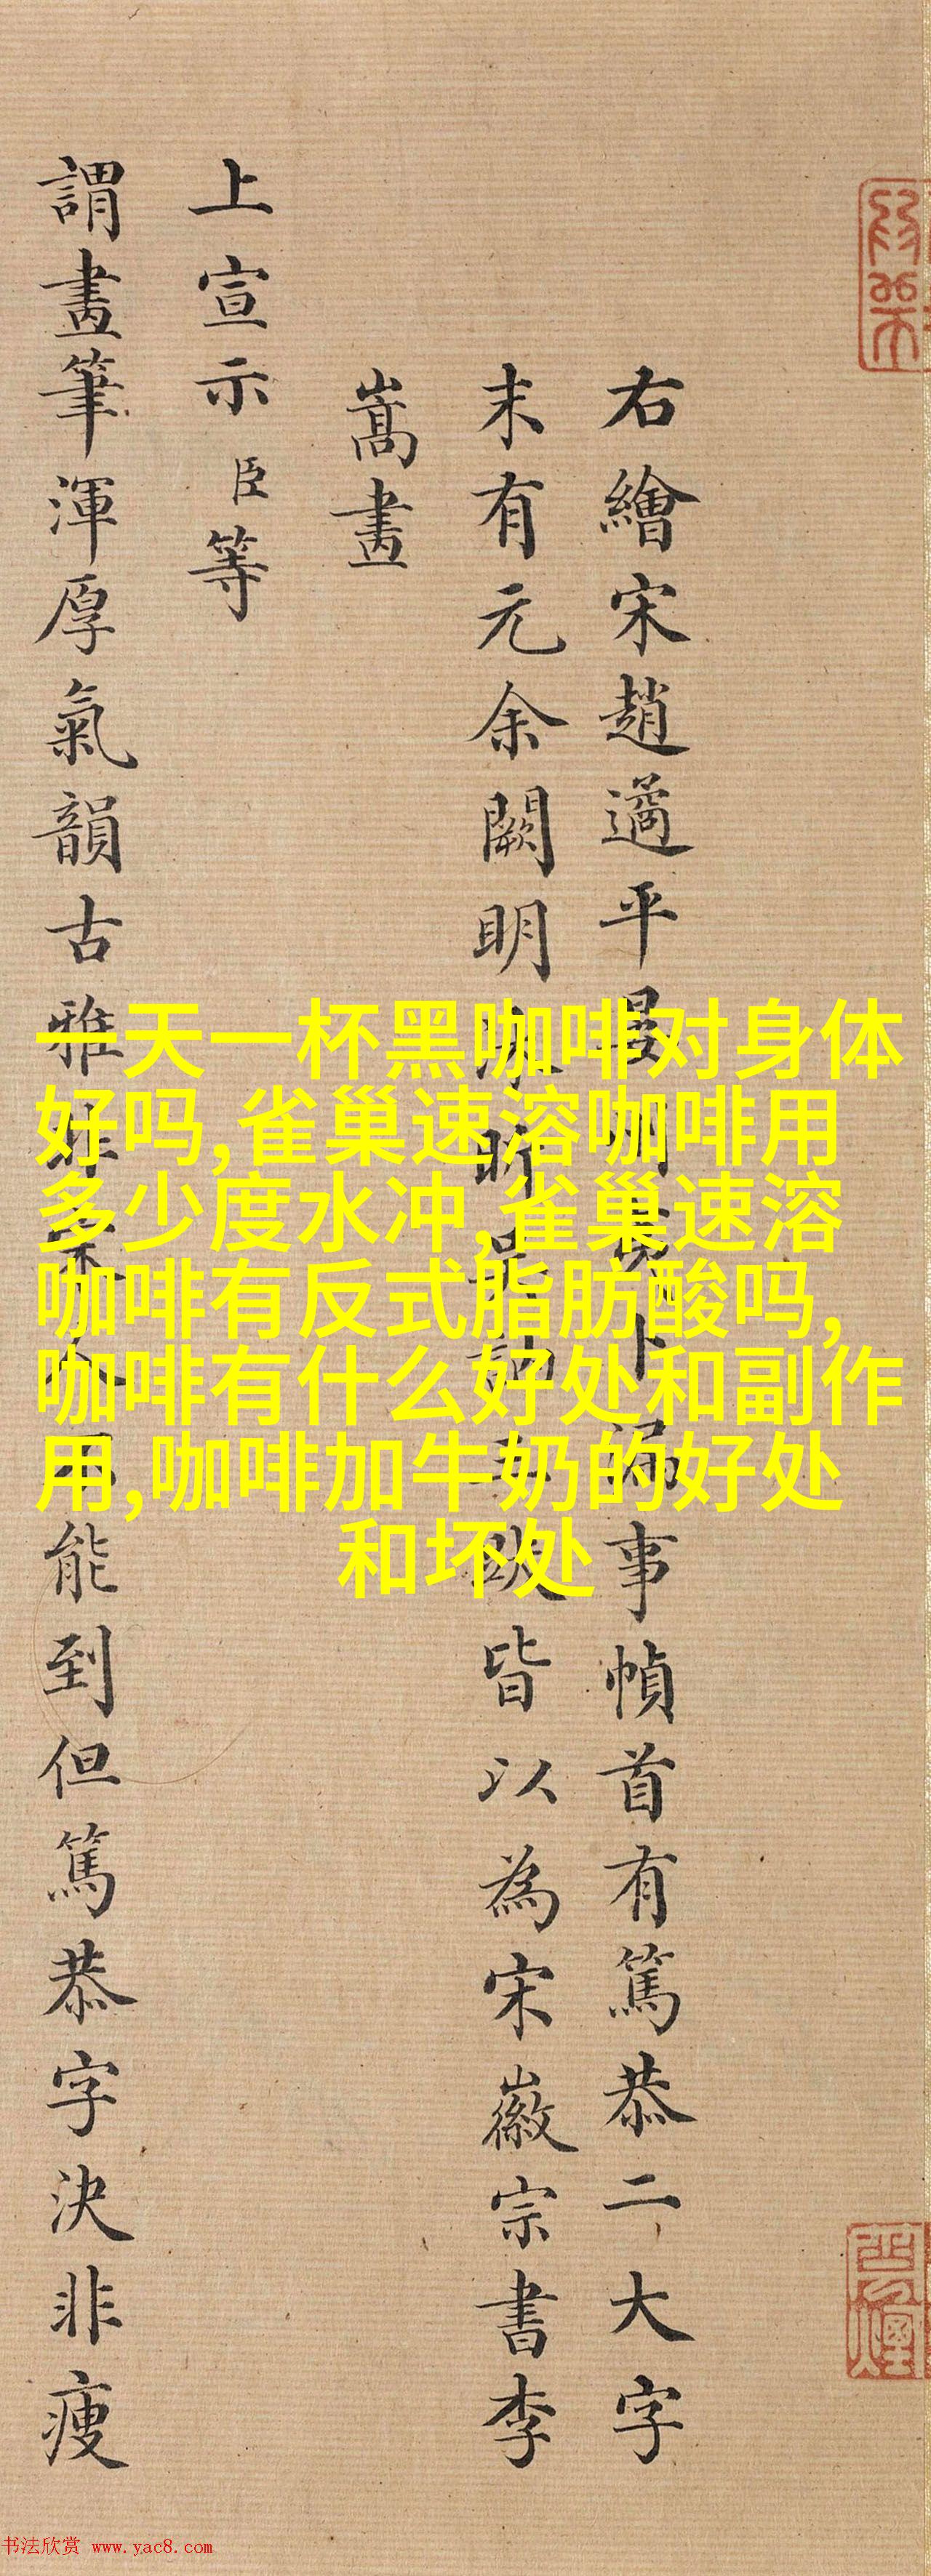 右繪宋趙遹平晏州卜漏事幀首有篤恭二大字
末有元余闕明昕跋皆以為宋徽宗書李
嵩畫
上宣示臣等
謂畫筆渾厚氣韻古雅非不能到但篤恭字決非瘦
一天一杯黑咖啡对身体
好吗,雀巢速溶咖啡用
多少度水冲,雀巢速溶
咖啡有反式脂肪酸吗,
咖啡有什么好处和副作
用,咖啡加牛奶的好处
和坏处
书法欣赏 www.yac8.com